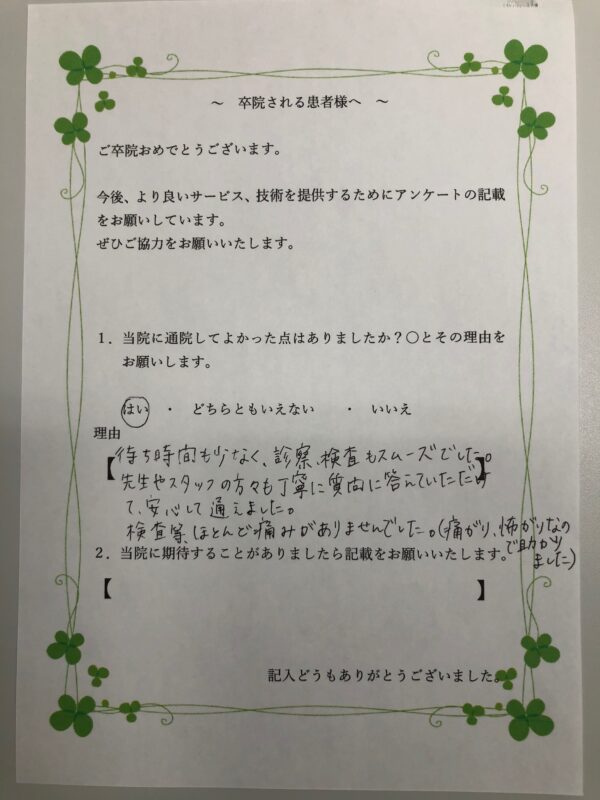 ～ 卒院される患者様へ ～
ご卒院おめでとうございます。
今後、より良いサービス、技術を提供するためにアンケートの記載
をお願いしています。
ぜひご協力をお願いいたします。
1．当院に通院してよかった点はありましたか？〇とその理由を
お願いします。
はい ・ どちらともいえない ・ いいえ
理由
【待ち時間も少なく、診察、検査もスムーズでした。】
先生やスタッフの方々も丁寧に質問に答えていただけ
て、安心して通えました。
検査等、ほとんど痛みがありませんでした。(痛がり、怖がりなの
で助かり
ました)
2．当院に期待することがありましたら記載をお願いいたします。
【 】
記入どうもありがとうございました。